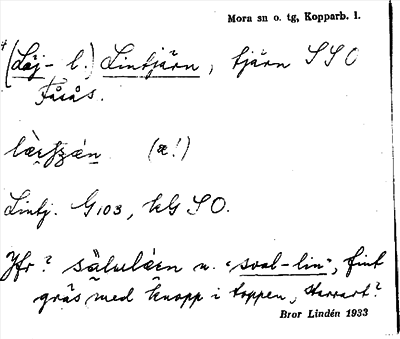 Mora sn o. tg, Kopparb. l.
(Löj- l.) Lintjärn, tjärn SSO
Fåsås.
(æ!)
Lintj. G103, kG SO.
Jfr? n. "sval-lin", fint
gräs med knopp i toppen, starrart?
Bror Lindén 1933